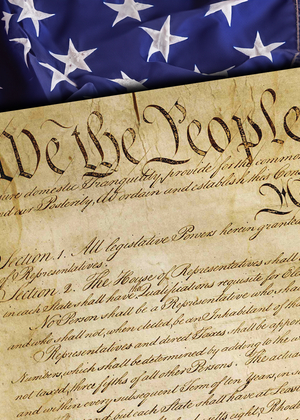 We the People
ure domestic Tranquility, provide for the common
nd our Posterity, do ordain and establish this Cons
Section. 1. All legislative Powers herein grante
of Representatives.
Section. 2. The House of Representatives shall
in each State shall have Qualifications requisite for E
No Person shall be a Representative who sha
and who shall not, when elected, be an Inhabitant of th
Representatives and direct Taxes shall be appor
Numbers, which shall be determined by adding to the
not taxed, three fifths of all other Persons. The actua
and within every subsequent Term of ten Years, in
but each State shall have at Leas